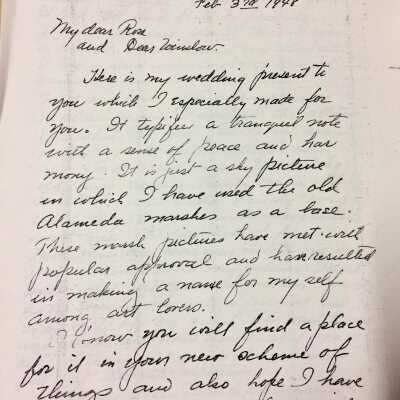 Feb 3rd 1948
My dear Rose
and Dear Winslow.
Here is my wedding present to
you which I especially made for
you. It typifies a tranquil note
with a sense of peace and har
mony. It is just a sky picture
in which I have used the old
Alameda marshes as a base.
These marsh pictures have met with
popular approval and have resulted
in making a name for my self
among art lovers.
I know you will find a place
for it in your new scheme of
things and also hope I have